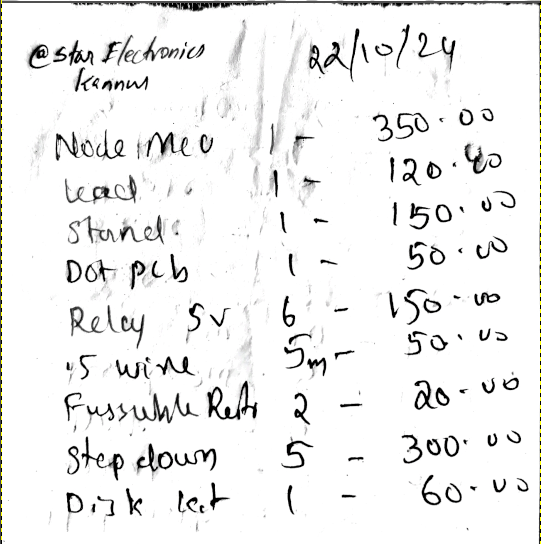 @ Star Electronics 22/10/24
Kannur
Node Mcu 1 - 350.00
Lead 1 - 120.00
Stand 1 - 150.00
Dot pcb 1 - 50.00
Relay 5V 6 - 150.00
.5 wire 5m - 50.00
Fussuble 2 - 20.00
Step down 5 - 300.00
Disk 1 - 60.00